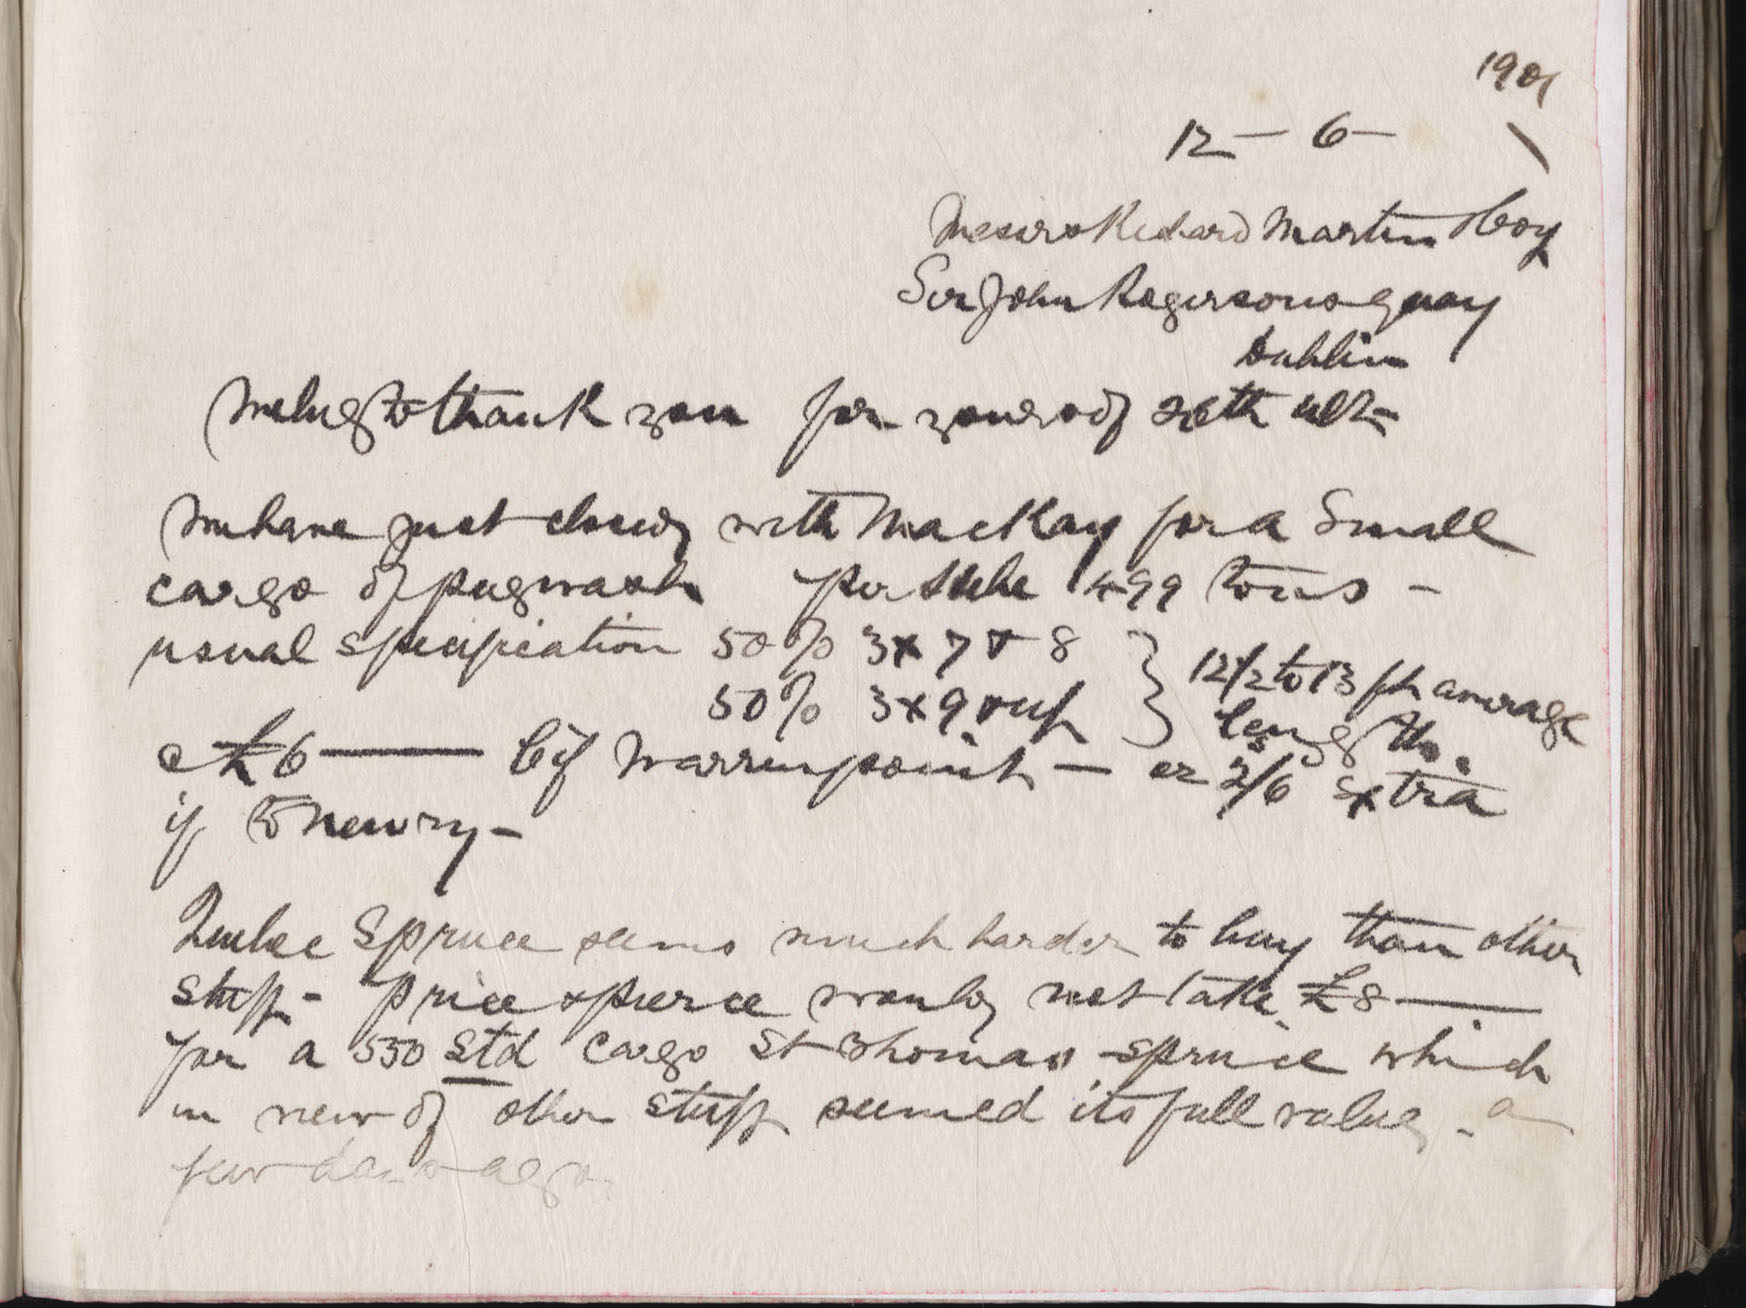 1901
12 - 6 -
Messrs Richard Martin & Coy
Sir John Rogersons Quay
Dublin
We beg to thank you for yours of 26th ult -
We have just closed with MacKay for a Small
cargo of pugwash per 499 tons -
usual specification 50% 3x7 & 8 } 12/2 to 13 ft average
50% 3x9 & up } lengths.
@ £6 —— Cif Warrenpoint — or 2/6 Extra
if to Newry -
Quebec Spruce seems much harder to buy than other
stuff - Price & Pierce would not take £8 ——
for a 550 Std cargo St Thomas spruce which
in view of other stuff seemed its full value - a
few days ago.